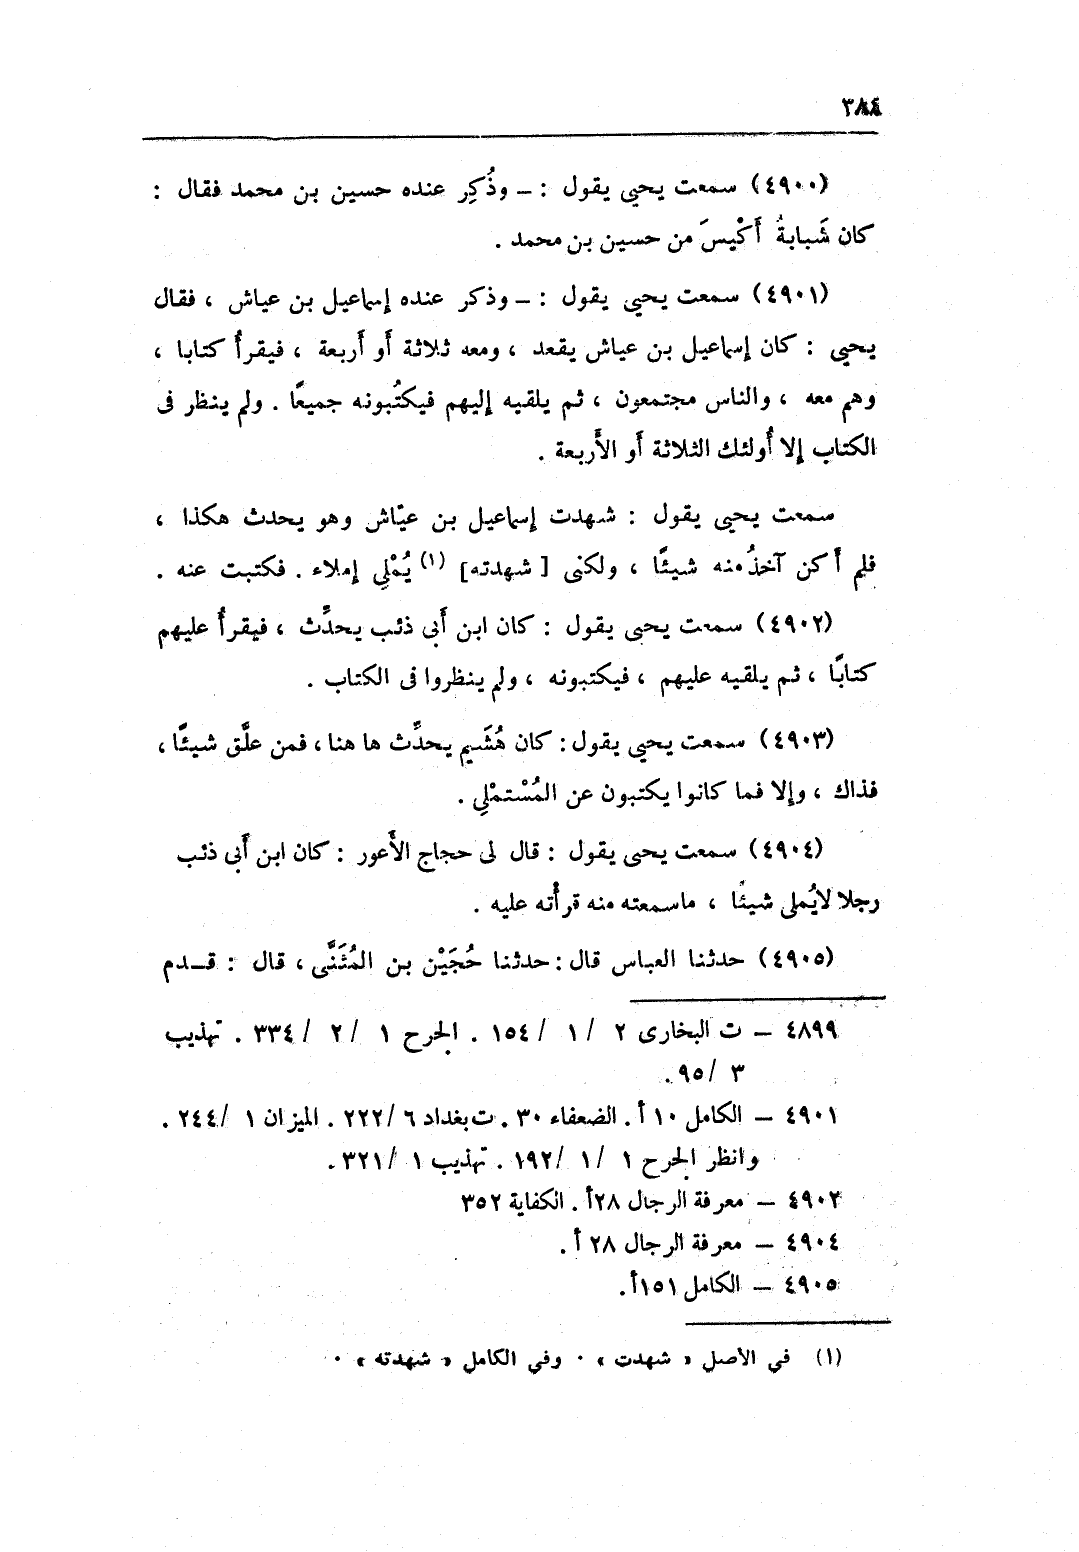 ٣٨٤
(٤٩٠٠) سمعت يحيى يقول : ــ وذُكِر عنده حسين بن محمد فقال :
كان شَبابةُ أَكْيسَ من حسين بن محمد .
(٤٩٠١) سمعت يحيى يقول : ــ وذكر عنده إسماعيل بن عياش ، فقال
يحيى : كان إسماعيل بن عياش يقعد ، ومعه ثلاثة أو أربعة ، فيقرأُ كتابا ،
وهم معه ، والناس مجتمعون ، ثم يلقيه إليهم فيكتُبونه جميعًا . ولم ينظر فى
الكتاب إلا أُولئك الثلاثة أو الأَربعة .
سمعت يحيى يقول : شهدت إسماعيل بن عيّاش وهو يحدث هكذا ،
فلم أَكن آخذُ منه شيئًا ، ولكنى [ شهدته] (١) يُمْلِي إملاء . فكتبت عنه .
(٤٩٠٢) سمعت يحيى يقول : كان ابن أَبى ذئب يحدِّث ، فيقرأُ عليهم
كتابًا ، ثم يلقيه عليهم ، فيكتبونه ، ولم ينظروا فى الكتاب .
(٤٩٠٣) سمعت يحيى يقول : كان هُشَيم يحدِّث ها هنا ، فمن علَّق شيئًا ،
فذاك ، وإلا فما كانوا يكتبون عن المُسْتمْلِي .
(٤٩٠٤) سمعت يحيى يقول : قال لى حجاج الأَعور : كان ابن أَبى ذئب
رجلا لايُملى شيئًا ، ماسمعته منه قرأْته عليه .
(٤٩٠٥) حدثنا العباس قال : حدثنا حُجَيْن بن المُثَنَّى ، قال : قــدم
٤٨٩٩ ــ ت البخارى ٢ /١ /١٥٤ . الجرح ١ /٢ /٣٣٤ . تهذيب
٣ /٩٥ .
٤٩٠١ ــ الكامل ١٠ أ . الضعفاء ٣٠ . ت بغداد ٦ /٢٢٢ . الميزان ١ /٢٤٤ .
وانظر الجرح ١ /١ /١٩٢ . تهذيب ١ /٣٢١ .
٤٩٠٢ ــ معرفة الرجال ٢٨أ . الكفاية ٣٥٢
٤٩٠٤ ــ معرفة الرجال ٢٨ أ .
٤٩٠٥ ــ الكامل ١٥١أ .
(١) في الاصل « شهدت » . وفي الكامل « شهدته » .